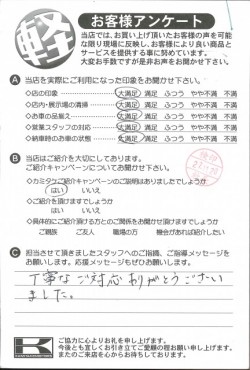 軽
お客様アンケート
当店では、お買い上げ頂いたお客様の声を可能
な限り現場に反映し、お客様により良い商品と
サービスを提供する事に努めています。
大変お手数ですが是非お声をお聞かせ下さい。
A 当店を実際にご利用になった印象をお聞かせ下さい。
◇店の印象 大満足 満足 ふつう やや不満 不満
◇店内・展示場の清掃 大満足 満足 ふつう やや不満 不満
◇お車の品揃え 大満足 満足 ふつう やや不満 不満
◇営業スタッフの対応 大満足 満足 ふつう やや不満 不満
◇納車時のお車の状態 大満足 満足 ふつう やや不満 不満
B 当店はご紹介を大切にしております。
ご紹介キャンペーンについてお聞かせ下さい。
◇カミタケご紹介キャンペーンの説明はありましたでしょうか
はい いいえ
◇ご紹介を頂けますでしょうか
はい いいえ
◇具体的にご紹介頂ける方とのご関係をお聞かせ頂けますでしょうか
ご親族 ご友人 職場の方 機会があれば紹介したい
C 担当させて頂きましたスタッフへのご指摘、ご指導メッセージを
お願いします。応援メッセージもぜひお願いします。
丁寧なご対応ありがとうござい
ました。
K
ご協力に心よりお礼を申し上げます。
今後とも宜しくお引き立てご愛顧の程お願い申し上げます。
またのご来店を心からお待ちしております。